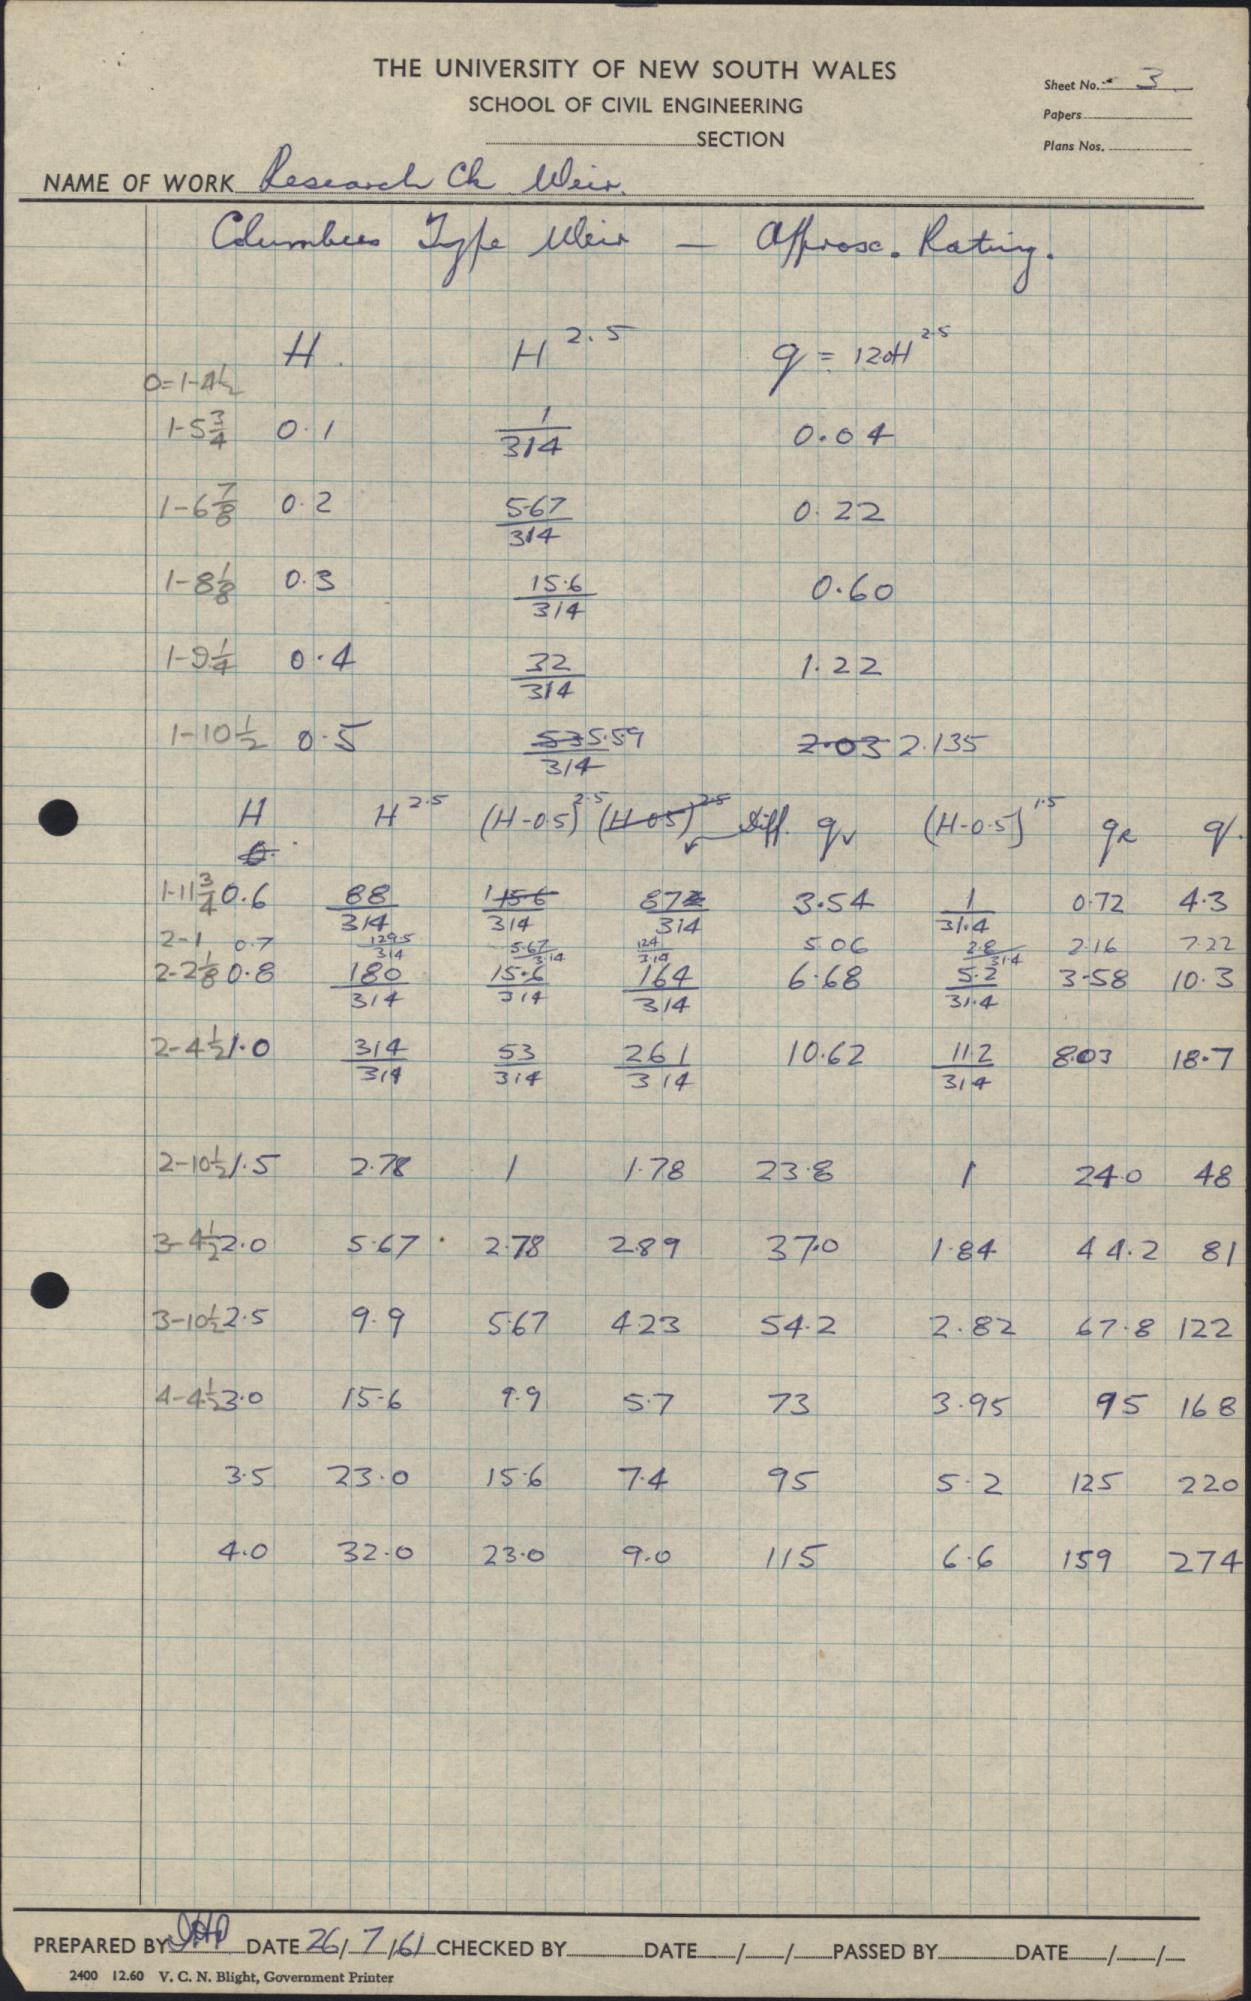 THE UNIVERSITY OF NEW SOUTH WALES
SCHOOL OF CIVIL ENGINEERING
SECTION
Sheet No. 3
Papers
Plans Nos.
NAME OF WORK Research Ch Weir.
Columbus Type Weir — Approx. Rating.
H. H^2.5 q = 120H^2.5
0=1-4½
1-5¾ 0.1 1/314 0.04
1-6⅞ 0.2 5.67/314 0.22
1-8⅛ 0.3 15.6/314 0.60
1-9¼ 0.4 32/314 1.22
1-10½ 0.5 53 55.9/314 2.03 2.135
H H^2.5 (H-0.5)^2.5 (H-0.5)^2.5 Diff. qv (H-0.5)^1.5 qR q.
1-11¾ 0.6 88/314 1 15.6/314 87/314 3.54 1/31.4 0.72 4.3
2-1 0.7 129.5/314 5.67/314 124/314 5.06 2.8/31.4 2.16 7.22
2-2⅛ 0.8 180/314 15.6/314 164/314 6.68 5.2/31.4 3.58 10.3
2-4½ 1.0 314/314 53/314 261/314 10.62 112/314 8.03 18.7
2-10½ 1.5 2.78 1 1.78 23.8 1 24.0 48
3-4½ 2.0 5.67 2.78 2.89 37.0 1.84 44.2 81
3-10½ 2.5 9.9 5.67 4.23 54.2 2.82 67.8 122
4-4½ 3.0 15.6 9.9 5.7 73 3.95 95 168
3.5 23.0 15.6 7.4 95 5.2 125 220
4.0 32.0 23.0 9.0 115 6.6 159 274
PREPARED BY DATE 26/7/61 CHECKED BY DATE / / PASSED BY DATE / /
2400 12.60 V. C. N. Blight, Government Printer